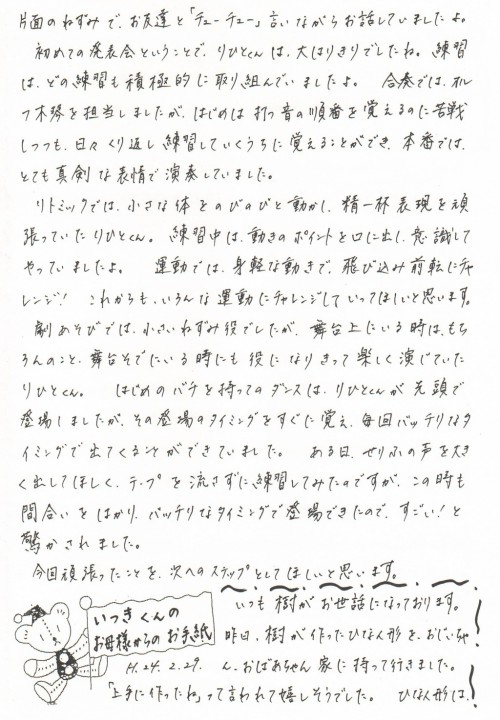 片面のねずみで、お友達と「チューチュー」言いながらお話していましたよ。
初めての発表会ということで、りひとくんは、大はりきりでしたね。練習
は、どの練習も積極的に取り組んでいましたよ。 合奏では、オル
フ木琴を担当しましたが、はじめは打つ音の順番を覚えるのに苦戦
しつつも、日々くり返し練習していくうちに覚えることができ、本番では、
とても真剣な表情で演奏していました。
リトミックでは、小さな体をのびのびと動かし、精一杯表現を頑
張っていたりひとくん。練習中は、動きのポイントを口に出し、意識して
やっていましたよ。 運動では、身軽な動きで、飛び込み前転にチャ
レンジ! これからも、いろんな運動にチャレンジしていってほしいと思います。
劇あそびでは、小さいねずみ役でしたが、舞台上にいる時は、もち
ろんのこと、舞台そでにいる時にも役になりきって楽しく演じていた
りひとくん。 はじめのバチを持ってのダンスは、りひとくんが先頭で
登場しましたが、その登場のタイミングをすぐに覚え、毎回バッチリなタ
イミングで出てくることができていました。 ある日、せりふの声を大き
く出してほしく、テープを流さずに練習してみたのですが、この時も
間合いをはかり、バッチリなタイミングで登場できたので、すごい!と
驚かされました。
今回頑張ったことを、次へのステップとしてほしいと思います。
いつきくんの
お母様からのお手紙
H.24.2.29.
いつも樹がお世話になっております。
昨日、樹が作ったひな人形を、おじいちゃ
ん、おばあちゃん家に持って行きました。
「上手に作ったね」って言われて嬉しそうでした。 ひな人形は、